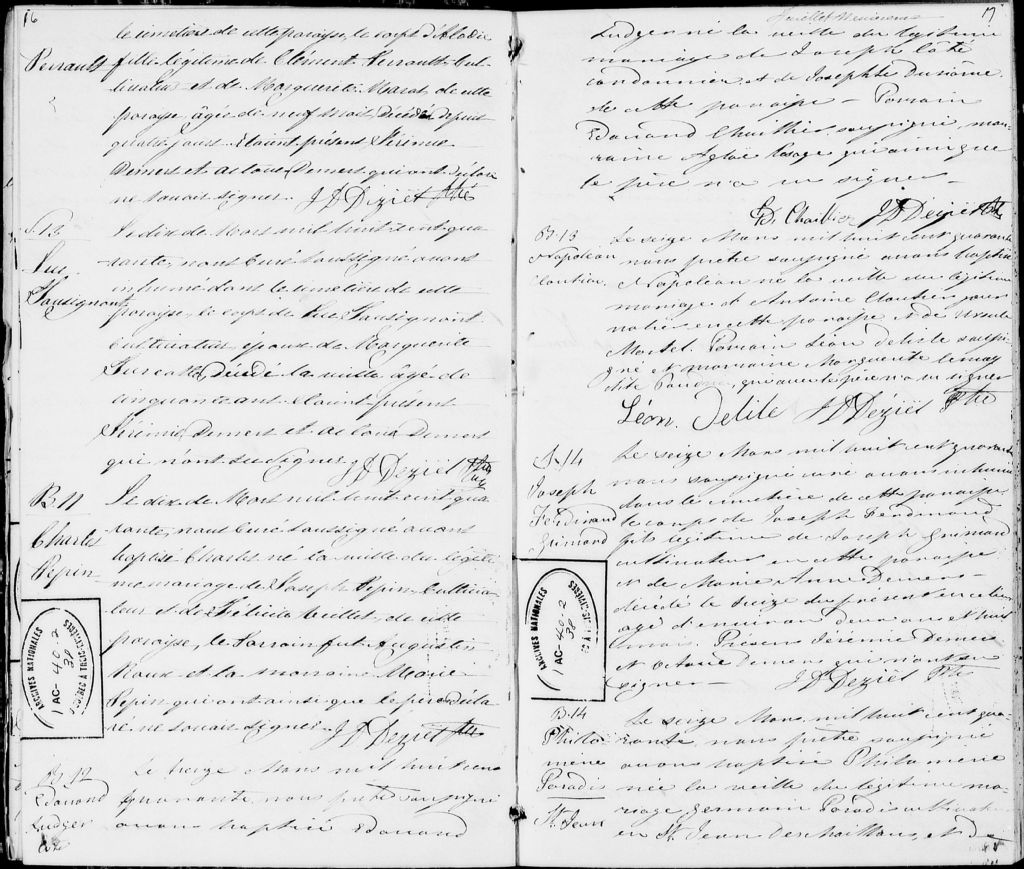 16
le cimetière de cette paroisse, le corps d'Elodie
Perrault fille légitime de Clément Perrault cul-
tivateur et de Marguerite Marat de cette
paroisse, âgée de neuf mois, décédée depuis
quatre jours. Etaient présent Jérémie
Demers et Demers qui ont déclaré
ne savoir signer. J D Déziel Ptre
S. 13
Luc
Sansignont
Le dix de Mars mil huit cent qua-
rante, nous Curé soussigné avons
inhumé dans le cimetière de cette
paroisse, le corps de Luc Sansignont
Cultivateur, époux de Marguerite
décédé la veille âgé de
cinquante ans. Etaient présent
Jérémie Demers et Demers
qui n'ont su signer. J D Déziel Ptre
Curé
B. 11
Charles
Pepin
Le dix de Mars mil huit cent qua-
rante, nous Curé soussigné avons
baptisé Charles né la veille du légiti-
me mariage de Joseph Pepin Cultiva-
teur et de Félicité de cette
paroisse, le Parrain fut Augustin
Roux et la marraine Marie
Pepin qui ont ainsi que le père décla-
ré ne savoir signer J D Déziel Ptre
ARCHIVES NATIONALES
1 AC- 40-2
38
B. 12
Edouard
Ludger
Coté
Le treize Mars mil huit cent
quarante, nous prêtre soussigné
avons baptisé Edouard
17
Ludger né la veille du légitime
mariage de Joseph Côté
cordonnier et de Josephte
de cette paroisse - Parrain
Edouard Chaillier soussigné, mar-
raine Aglaé Lesage qui ainsi que
le père n'a su signer -
Ed. Chaillier J D Déziel Ptre
B. 13
Napoléon
Cloutier
Le seize Mars mil huit cent quarante
nous prêtre soussigné avons baptisé
Napoléon né la veille du légitime
mariage d'Antoine Cloutier jour-
nalier en cette paroisse et de Ursule
Martel. Parrain Léon Delisle soussi-
gné et marraine Marguerite Lemay
dite qui avec le père n'a su signer
Léon. Delile J D Déziel Ptre
S. 14
Joseph
Ferdinand
Grimard
Le seize Mars mil huit cent quarante
nous soussigné curé avons inhumé
dans le cimetière de cette paroisse
le corps de Joseph Ferdinand
fils légitime de Joseph Grimard
cultivateur en cette paroisse
et de Marie Anne Demers -
décédé le seize du présent en l'
âge d'environ deux ans et huit
mois. Présens Jérémie Demers
et Octave Demers qui n'ont su
signer - J D Déziel Ptre
ARCHIVES NATIONALES
1 AC- 40-2
38
B. 14
Philo-
mène
Paradis
St. Jean
Le seize Mars mil huit cent qua-
rante, nous prêtre soussigné
avons baptisé Philomène
née la veille du légitime ma-
riage germain Paradis cultivateur
en St. Jean Deschaillons, et de